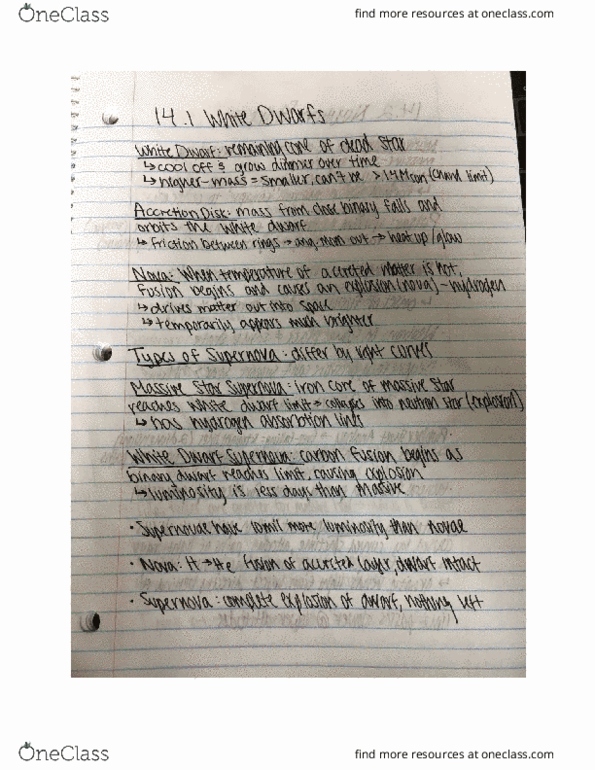 OneClass
find more resources at oneclass.com
14.1 White Dwarfs
White Dwarf: remaining core of dead star
↳ cool off & grow dimmer over time
↳ higher-mass = smaller, can't be > 1.4 Msun (chand limit)
Accretion Disk: mass from close binary falls and
orbits the white dwarf
↳ friction between rings → ang. mom out → heat up/glow
Nova: When temperature of accreted matter is hot,
fusion begins and causes an explosion (nova) - hydrogen
↳ drives matter out into space
↳ temporarily appears much brighter
Types of Supernova: differ by light curves
Massive Star Supernova: iron core of massive star
reaches white dwarf limit → collapses into neutron star (explosion)
↳ has hydrogen absorption lines
White Dwarf Supernova: carbon fusion begins as
binary dwarf reaches limit, causing explosion
↳ luminosity is less days than massive
• Supernovae have 10mil more luminosity than novae
• Nova: H → He fusion of accreted layer, dwarf intact
• Supernova: complete explosion of dwarf, nothing left
OneClass
find more resources at oneclass.com